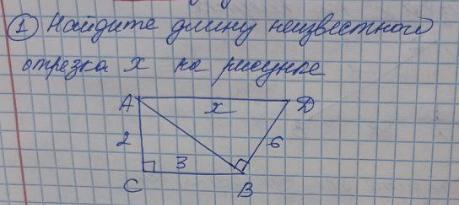 ① Найдите длину неизвестного
отрезка x на рисунке
A x D
2 6
3
C B